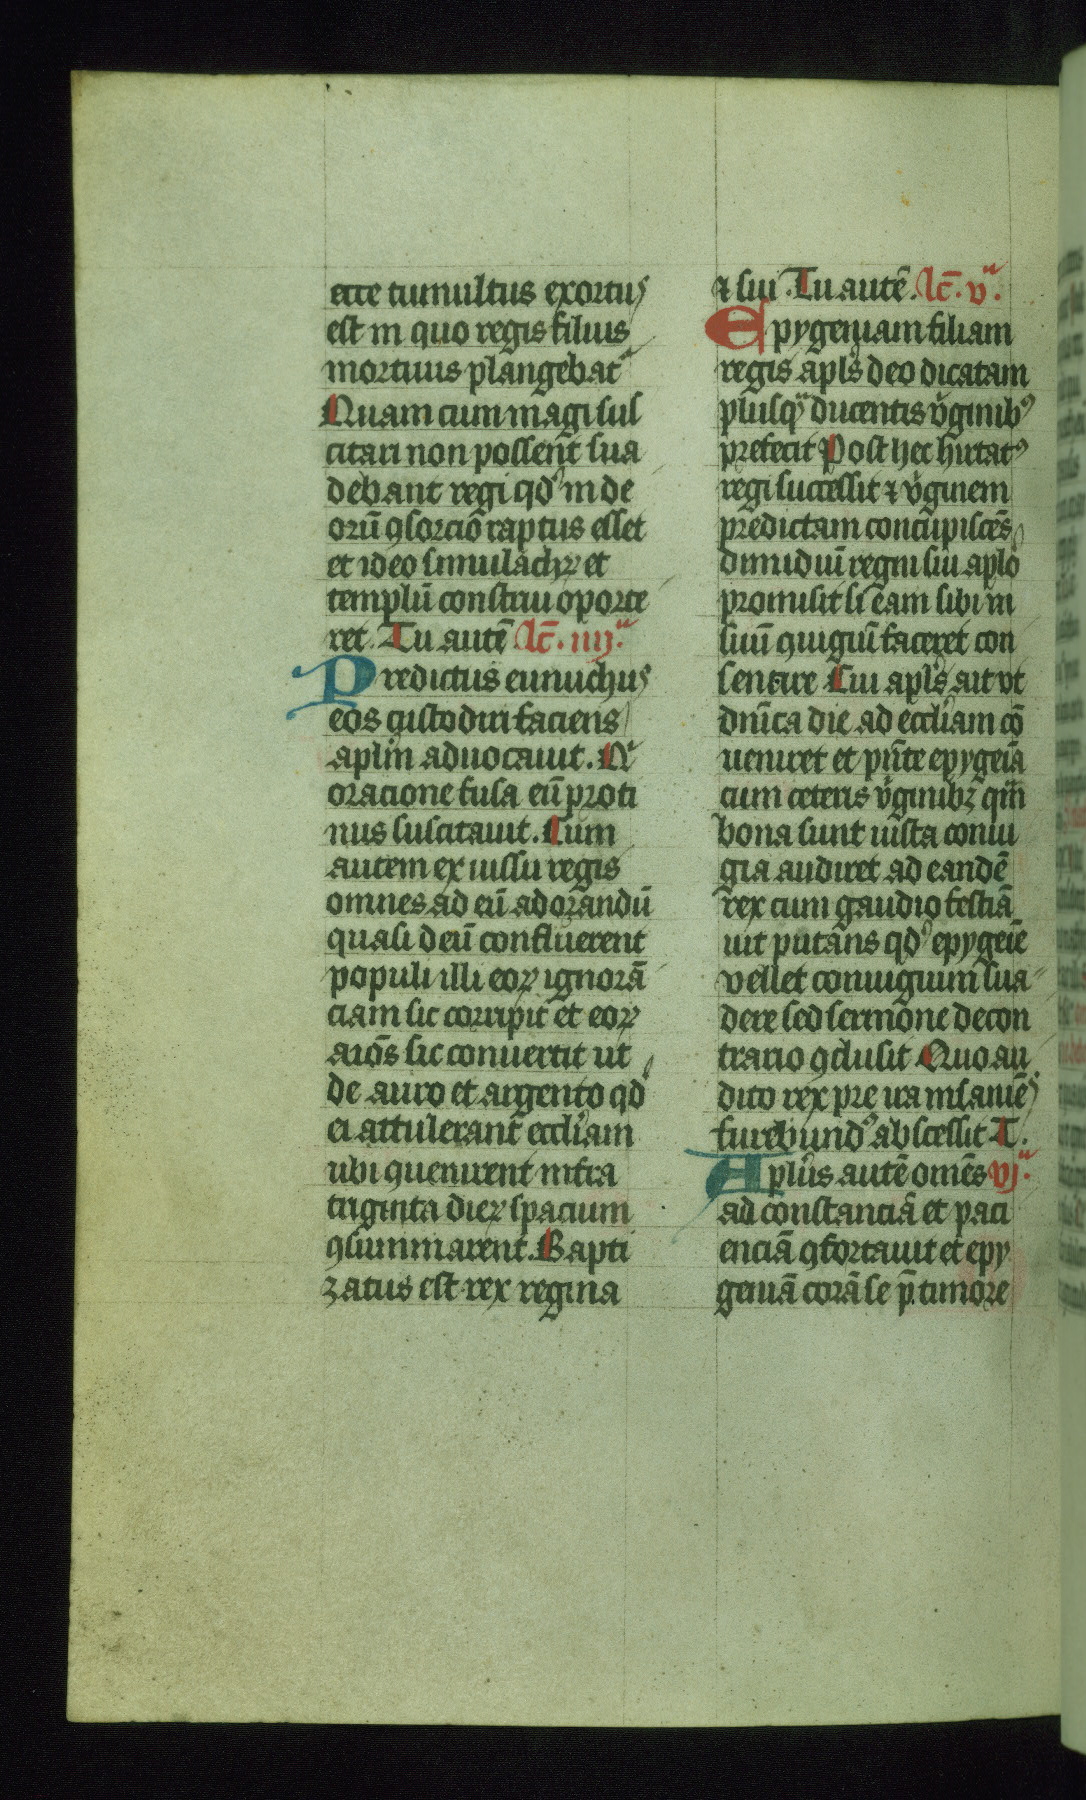 ecce tumultus exortus
est in quo regis filius
mortuus plangebat᷑
Quem cum magi sus
citari non possent sua
debant regi qd' in de
orū ꝯsorciō raptus esset
et ideo simulachꝝ et
templū construi oporte
ret. Tu autē lc̄. iiijᵃ.
Predictus eunuchus
eos custodiri faciens
aplm̄ aduocauit. Qⁱ
oracione fusa eū proti
nus suscitauit. Cum
autem ex iussu regis
omnes ad eū adorandū
quasi deū confluerent
populi illi eoꝝ ignorā
ciam sic corripit et eoꝝ
aīos sic conuertit ut
de auro et argento qd'
ei attulerant eccl̄iam
ubi ꝯuenirent infra
triginta dieꝝ spacium
ꝯsummarent. Bapti
zatus est rex regina
⁊ sui. Tu autē. lc̄. vᵃ.
Epygeniam filiam
regis apl̄s deo dicatam
plusqᵃ ducentis v̾ginibꝰ
prefecit Post hec hirtatꝰ
regi successit ⁊ v̾ginem
predictam concupiscēs
dimidiū regni sui aplō
promisit si eam sibi in
suū ꝯiugiū faceret con
sentire Cui apl̄s ait vt
dn̄ica die ad eccl̄iam cō
ueniret et pn̄te epygeīa
cum ceteris v̾ginibꝫ qm̄
bona sunt iusta coniu
gia audiret ad eandē
rex cum gaudio festīa
uit putans qd' epygeīe
vellet coniugium sua
dere sed sermone de con
trario ꝯclusit Quo au
dito rex pre ira insaniēs
furebundꝰ abscessit T.
Apl̄us autē omēs vjᵃ.
ad constanciā et paci
enciā ꝯfortauit et epy
geniā corā se p̄ timore